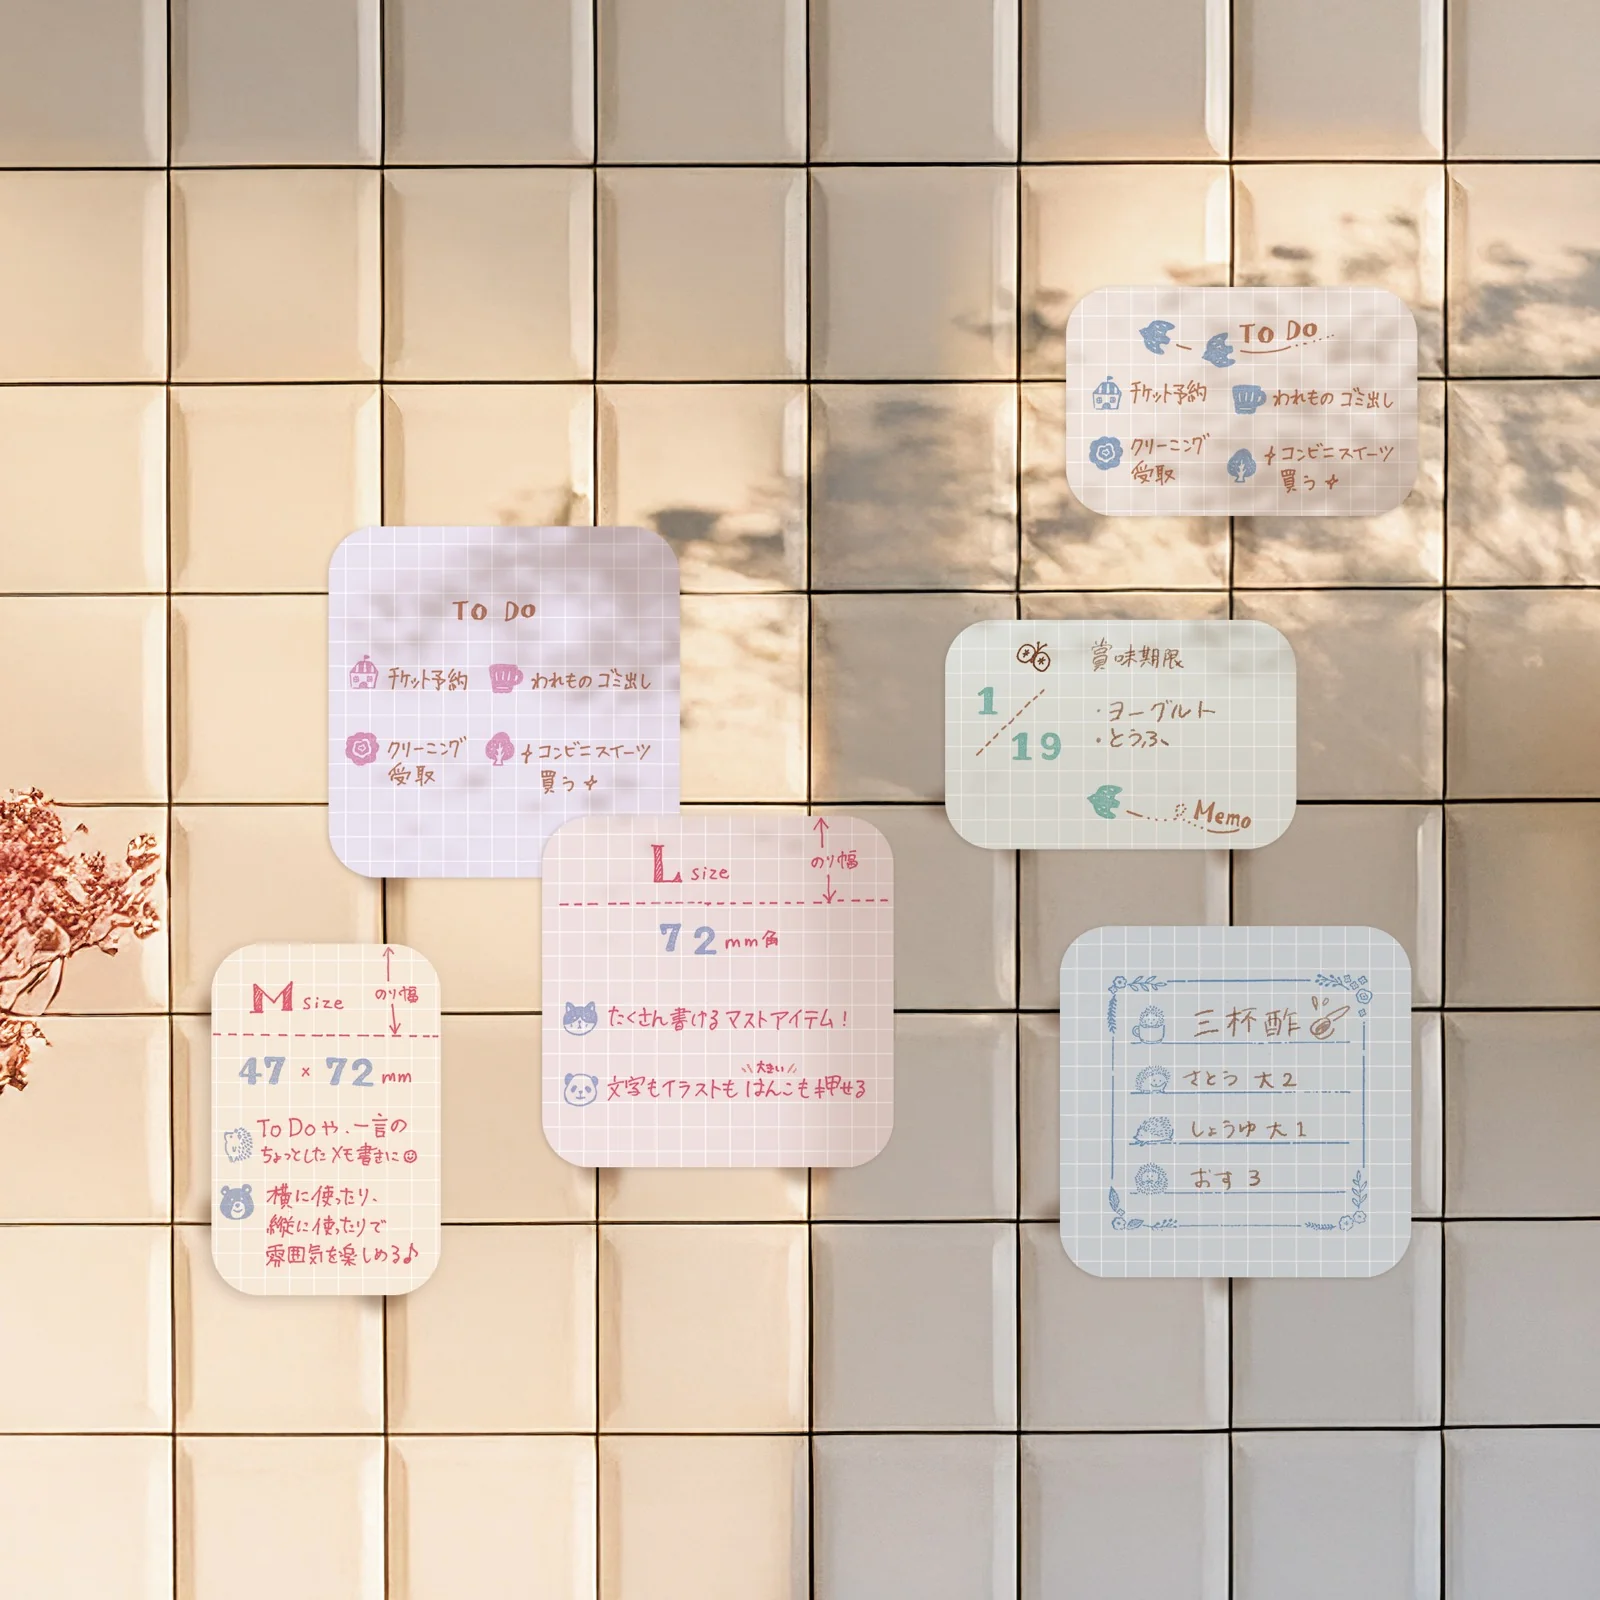 To Do
チケット予約
われもの ゴミ出し
クリーニング
受取
コンビニスイーツ
買う
To Do
チケット予約
われもの ゴミ出し
クリーニング
受取
コンビニスイーツ
買う
賞味期限
1/19
・ヨーグルト
・とうふ
Memo
L size
のり幅
72mm角
たくさん書けるマストアイテム！
大きい
文字もイラストもはんこも押せる
M size
のり幅
47×72mm
To Doや、一言の
ちょっとしたメモ書きに
横に使ったり、
縦に使ったりで
雰囲気を楽しめる♪
三杯酢
さとう 大2
しょうゆ 大1
おす 3